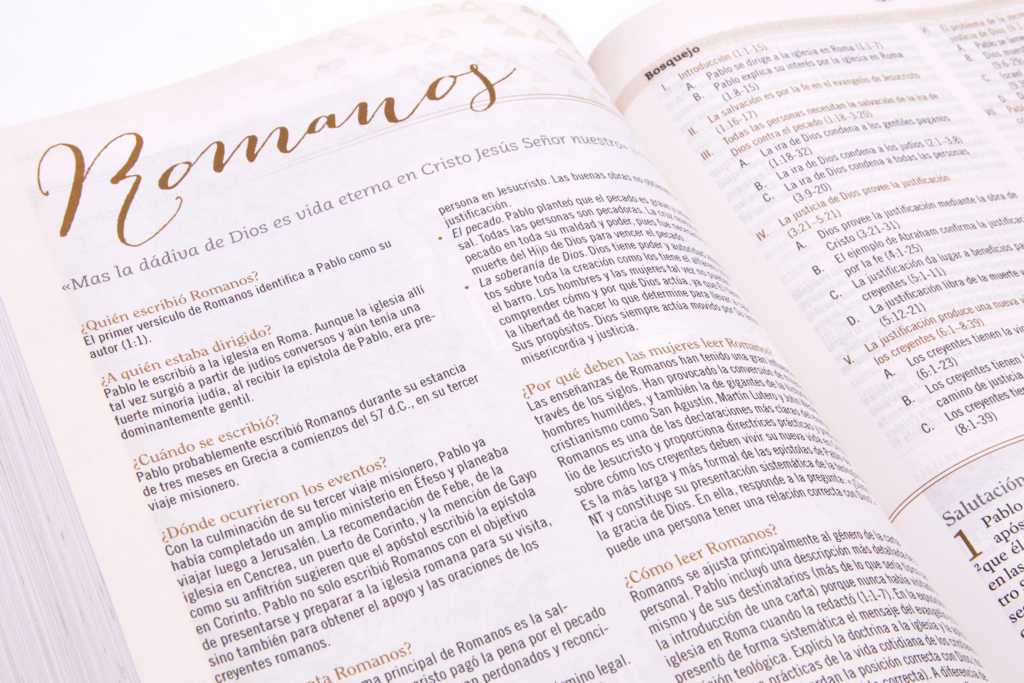 Romanos
«Mas la dádiva de Dios es vida eterna en Cristo Jesús Señor nuestro»
¿Quién escribió Romanos?
El primer versículo de Romanos identifica a Pablo como su
autor (1:1).
¿A quién estaba dirigido?
Pablo le escribió a la iglesia en Roma. Aunque la iglesia allí
tal vez surgió a partir de judíos conversos y aún tenía una
fuerte minoría judía, al recibir la epístola de Pablo, era pre-
dominantemente gentil.
¿Cuándo se escribió?
Pablo probablemente escribió Romanos durante su estancia
de tres meses en Grecia a comienzos del 57 d.C., en su tercer
viaje misionero.
¿Dónde ocurrieron los eventos?
Con la culminación de su tercer viaje misionero, Pablo ya
había completado un amplio ministerio en Éfeso y planeaba
viajar luego a Jerusalén. La recomendación de Febe, de la
iglesia en Cencrea, un puerto de Corinto, y la mención de Gayo
como su anfitrión sugieren que el apóstol escribió la epístola
en Corinto. Pablo no solo escribió Romanos con el objetivo
de presentarse y preparar a la iglesia romana para su visita,
sino también para obtener el apoyo y las oraciones de los
creyentes romanos.
Romanos?
principal de Romanos es la sal-
cristo pagó la pena por el pecado
perdonados y reconci-
término legal.
persona en Jesucristo. Las buenas obras no
justificación.
• El pecado. Pablo planteó que el pecado es
sal. Todas las personas son pecadoras. La cruz
pecado en toda su maldad y poder, pues fue
muerte del Hijo de Dios para vencer el pecado.
• La soberanía de Dios. Dios tiene poder y
tos sobre toda la creación como los tiene el
el barro. Los hombres y las mujeres tal vez no
comprender cómo y por qué Dios actúa, ya
la libertad de hacer lo que determine para llevar
Sus propósitos. Dios siempre actúa movido por
misericordia y justicia.
¿Por qué deben las mujeres leer Romanos?
Las enseñanzas de Romanos han tenido una gran
través de los siglos. Han provocado la conversión de
hombres humildes, y también la de gigantes de la
cristianismo como San Agustín, Martín Lutero y
Romanos es una de las declaraciones más claras del
lio de Jesucristo y proporciona directrices prácticas
sobre cómo los creyentes deben vivir su nueva vida
Es la más larga y más formal de las epístolas de
NT y constituye su presentación sistemática de la
la gracia de Dios. En ella, responde a la pregunta:
puede una persona tener una relación correcta con
¿Cómo leer Romanos?
Romanos se ajusta principalmente al género de la carta
personal. Pablo incluyó una descripción más detallada
mismo y de sus destinatarios (más de lo que sería
la introducción de una carta) porque nunca había
iglesia en Roma cuando la redactó (1:1-7). En la
presentó de forma sistemática el mensaje del
posición teológica. Explicó la doctrina a la iglesia
prácticas de la vida cotidiana de los
la posición correcta con
correcta). A diferencia
Bosquejo
I. Introducción (1:1-15)
A. Pablo se dirige a la iglesia en Roma (1:1-7)
B. Pablo explica su interés por la iglesia en Roma
(1:8-15)
II. La salvación es por la fe en el evangelio de Jesucristo
(1:16-17)
III. Todas las personas necesitan la salvación de la ira de
Dios contra el pecado (1:18–3:20)
A. La ira de Dios condena a los gentiles paganos
(1:18-32)
B. La ira de Dios condena a los judíos (2:1–3:8)
C. La ira de Dios condena a todas las personas
(3:9-20)
IV. La justicia de Dios provee la justificación
(3:21–5:21)
A. Dios provee la justificación mediante la obra de
Cristo (3:21-31)
B. El ejemplo de Abraham confirma la justificación
por la fe (4:1-25)
C. La justificación da lugar a beneficios para
creyentes (5:1-11)
D. La justificación libra de la muerte
(5:12-21)
V. La justificación produce una nueva
los creyentes (6:1–8:39)
A. Los creyentes tienen la
(6:1-23)
B. Los creyentes tienen
camino de justicia
C. Los creyentes
(8:1-39)
El problema de la
justicia de Dios
A.
B.
C.
Salutación
1 Pablo
que él
en las
tro